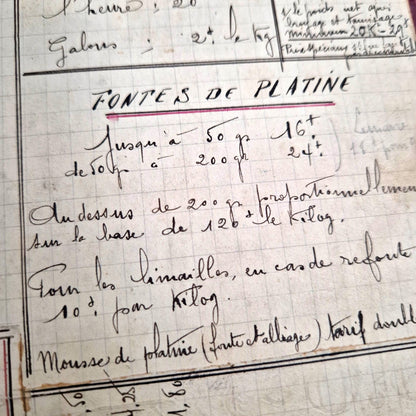 l'heure : 20
Galons : 2f. le kg
s/ le poids net après
brûlage et tamisage
minimum 20f
FONTES DE PLATINE
Jusqu'à 50 gr 16f.
de 50 gr à 200 gr 24f.
Au dessus de 200 gr proportionnellement
sur la base de 120f le Kilog.
Pour les limailles, en cas de refonte
10f. par Kilog.
Mousse de platine (fonte et alliage) tarif double
1,80